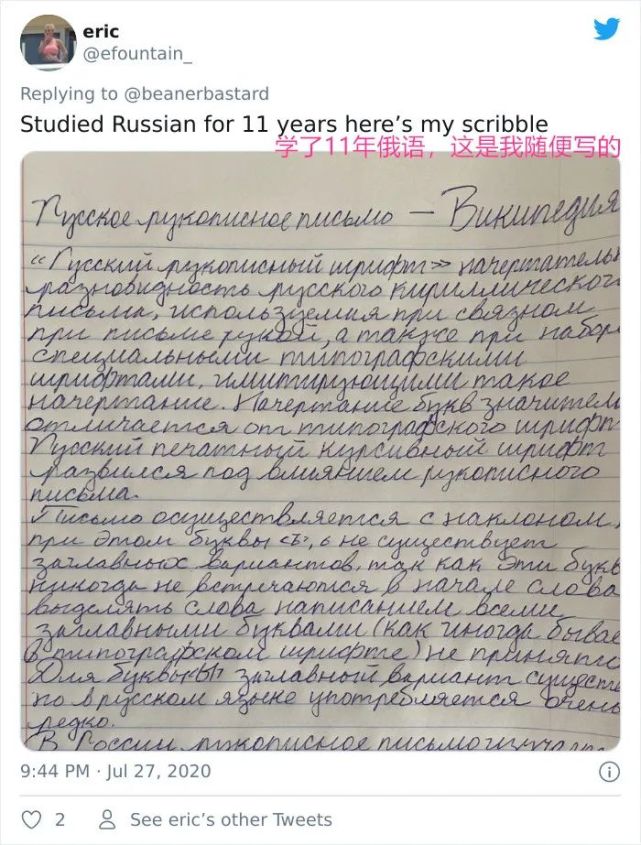 eric
@efountain_
Replying to @beanerbastard
Studied Russian for 11 years here’s my scribble
学了11年俄语，这是我随便写的
Русское рукописное письмо — Википедия
«Русский рукописный шрифт» начертатель
разновидность русского кириллическог
письма, используемая при связном
при письме рукой, а также при набор
специальными типографскими
шрифтами, имитирующими такое
начертание. Начертание букв значител
отличается от типографского шрифт
Русский печатный курсивный шрифт
развился под влиянием рукописного
письма.
Письмо осуществляется с наклоном,
при этом буквы <ъ>, ь не существует
заглавных вариантов, так как эти букв
никогда не встречаются в начале слова
выделять слова написанием всеми
заглавными буквами (как иногда бывае
в типографском шрифте) не принято
Для буквы «Ы» заглавный вариант сущест
но в русском языке употребляется очень
редко.
В России рукописное письмо
9:44 PM · Jul 27, 2020
2
See eric’s other Tweets